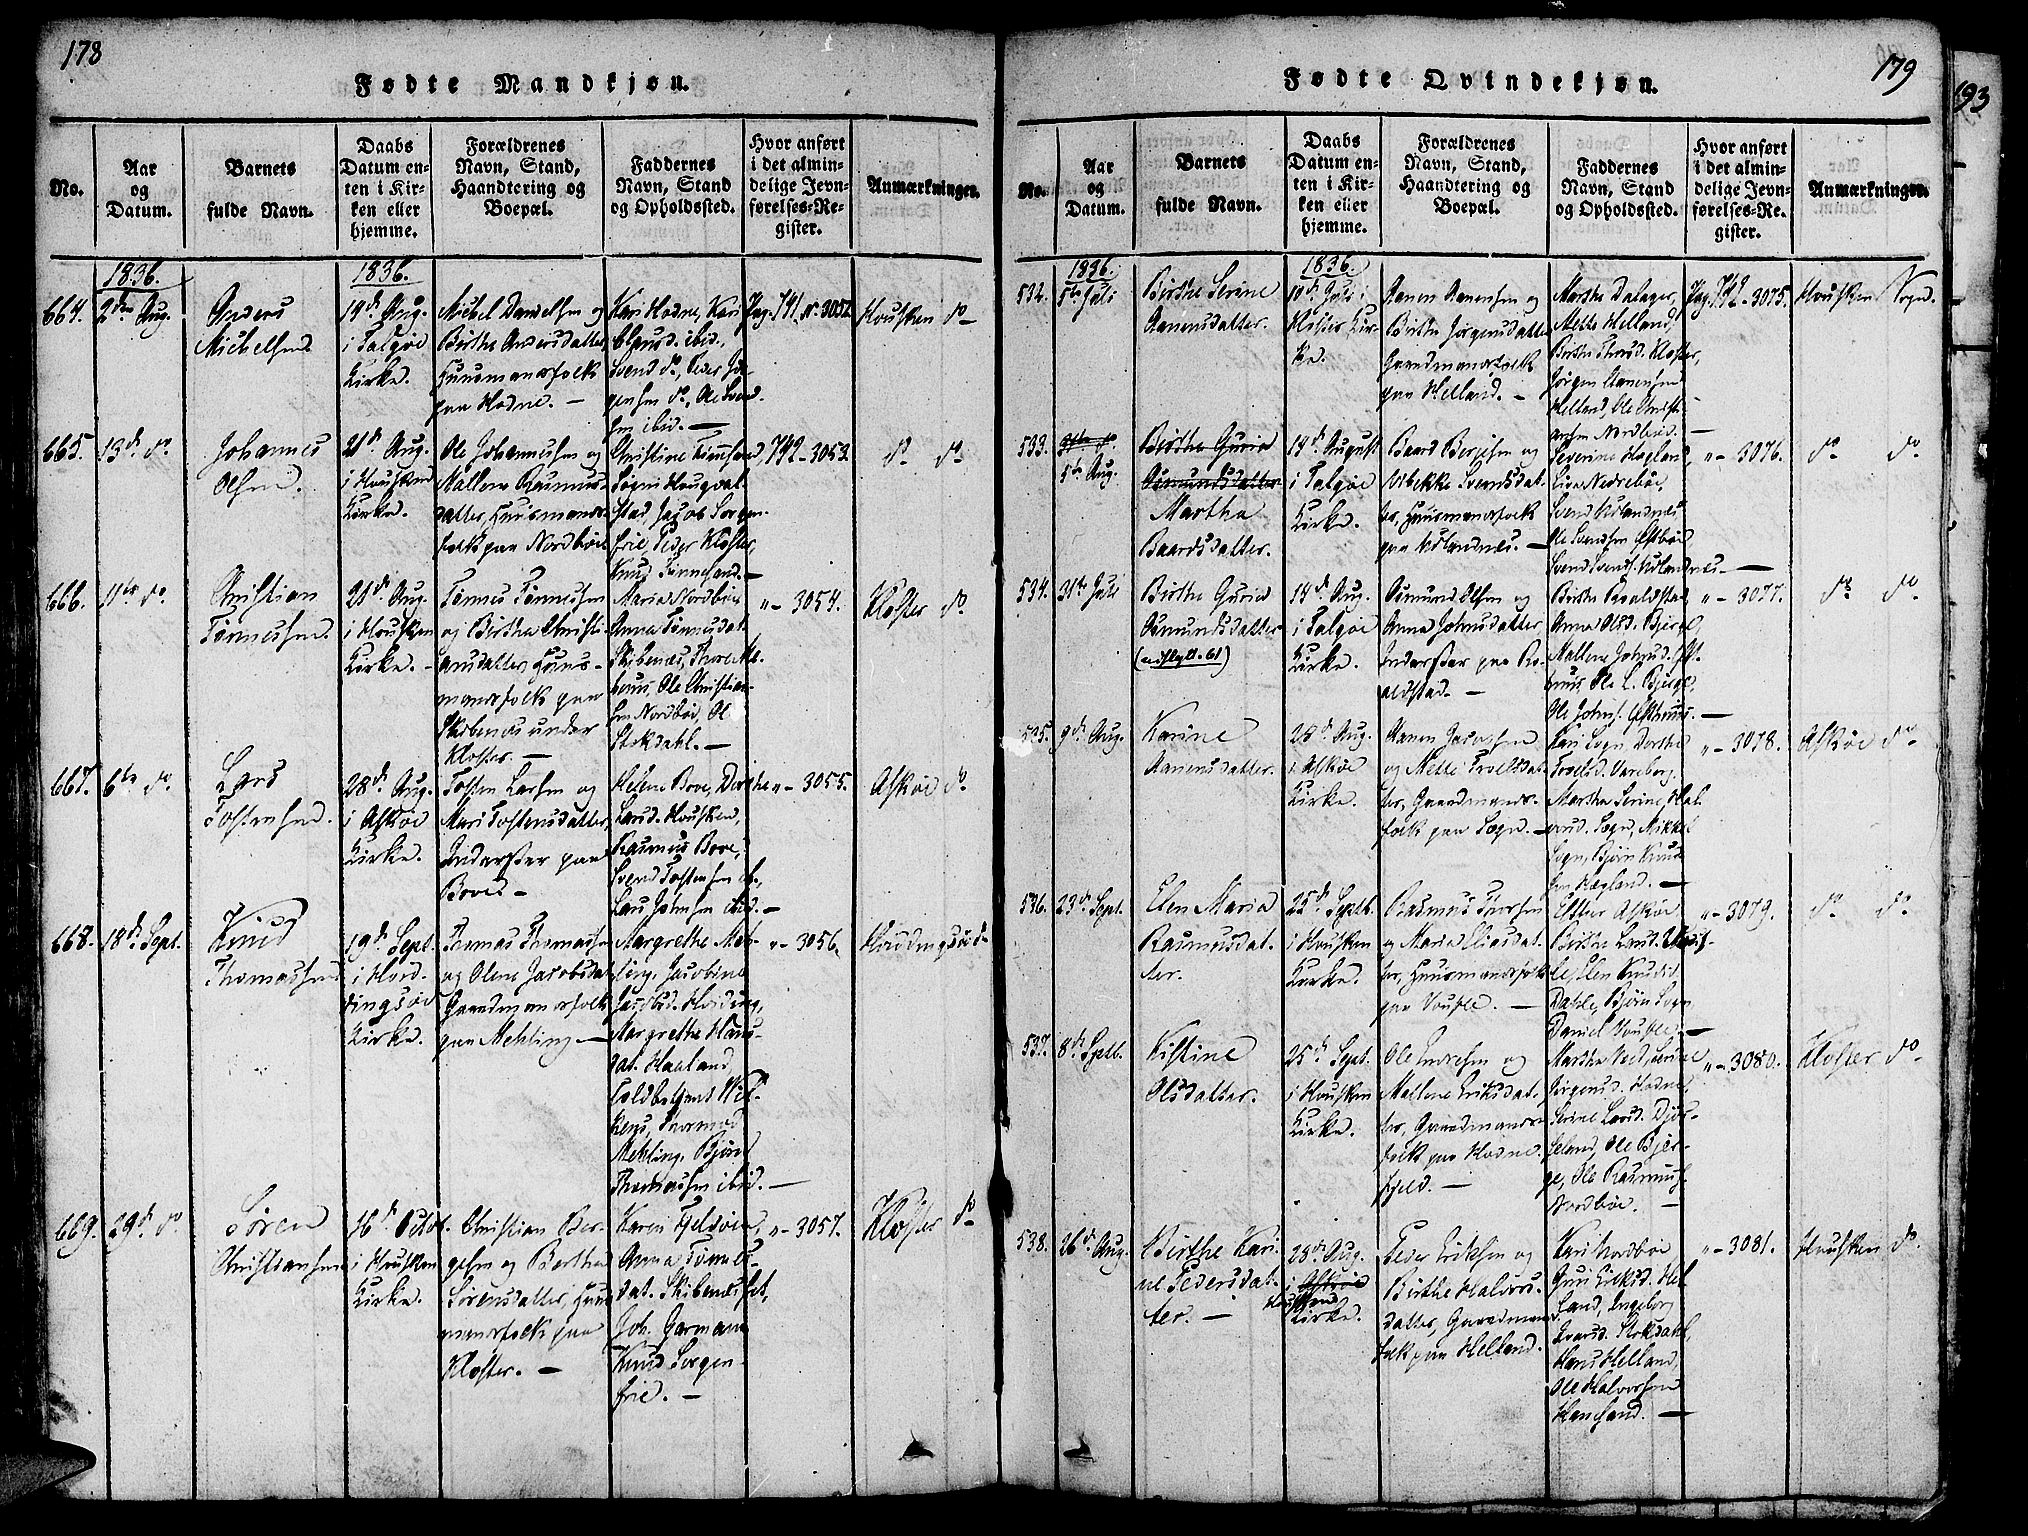 178
Fødte Mandkjøn.
No.
Aar
og
Datum.
Barnets
fulde Navn.
Daabs
Datum en-
ten i Kir-
ken eller
hjemme.
Forældrenes
Navn, Stand,
Haandtering og
Boepæl.
Faddernes
Navn, Stand
og Opholdssted.
Hvor anført
i det almin-
delige Jevn-
førelses-Re-
gister.
Anmærkninger.
1836.
1836.
664.
2den Aug.
Anders
Michelsen
14d Aug.
i Talgøe
Kirke.
Michel Danielsen og
Birthe Andersdatter,
Huusmandsfolk
paa Hodne. —
Kari Hodne, Kari
Clausd. ibid,
Svend do, Peder Jør-
gensen do, Ole Svend-
sen ibid. —
Pag. 791. No 3052
Housken do
665.
13d do
Johannes
Olsen.
21d Aug.
i Housken
Kirke.
Ole Johannesen og
Mallene Rasmus-
datter, Huusmands-
folk paa Nordbøe
Christine
Stad, Jacob Sorgen-
frie, Peder Kloster,
Knud
792 - 3053.
do do
666.
11te do.
Christian
Tønnesen.
21d Aug.
i Housken
Kirke. -
Tønnes Tønnesen
og Birthe Christi-
ansdatter, Huus-
mandsfolk paa
Skibenes under
Kloster. —
Maria Nordbøe
Anna Tønnesdat.
Skibenæs, Thore
Ole Christian-
sen Nordbøe, Ole
Stokdahl. —
" - 3054.
Kloster do
667.
6te do.
Lars
Tostensen.
28d Aug.
i Askøe
Kirke.
Tosten Larsen og
Mari Tostensdatter,
Inderster paa
Boved -
Helene Bove, Dorthe
Larsd. Housken,
Rasmus Bove,
Svend Tostensen ib.,
Lars Johnsen ibid. —
" - 3055.
Askøe do
668.
18d Sept.
Knud
Thomassen
19d Sept
i Hvid-
dingsøe
Kirke.
Thomas Thomassen
og Olene Jacobsdat
Gaardmandsfolk
paa Mehling —
Margrethe Meh-
ling, Jacobine
Jacobsd. Hviding,
Margrethe Hans-
dat. Haaland,
Toldbetjent Wil-
kens, Tormod
Mehling, Bjørn
Thomassen ibid. —
" - 3056.
Hviddingsøe do
669.
29d do
Søren
Christiansen
16d Octob.
i Housken
Kirke.
Christian Ber-
gesen og Bertha
Sørensdatter, Huus
mandsfolk paa
Kloster. —
Karen Fjeldøen,
Anna Tønnes-
dat. Skibenæsset,
Joh. Garmann
Knud Sorgen-
frie. —
" - 3057.
Kloster do
179
Fødte Qvindekjøn.
No.
Aar
og
Datum.
Barnets
fulde Navn.
Daabs
Datum en-
ten i Kir-
ken eller
hjemme.
Forældrenes
Navn, Stand,
Haandtering og
Boepæl.
Faddernes
Navn, Stand
og Opholdssted.
Hvor anført
i det almin-
delige Jevn-
førelses-Re-
gister.
Anmærkninger.
1836.
1836.
532.
5te Juli
Birthe Serine
Aanensdatter.
10d Juli i
Kloster Kir-
ke.
Aanen Aanensen og
Birthe Jørgensdatter
Gaardmandsfolk
paa Helland. —
Martha Dalager,
Mette Helland,
Birthe Kloster,
Jørgen Aanensen
Helland, Ole Christi-
ansen Nordbøe. —
Pag. 792 - 3075.
Housken Sogn.
533.
5te Aug.
Birthe Guria
Asmundsdatter
Martha
Baardsdatter.
14d August
i Talgøe
Kirke.
Baard Berjesen og
Vibekke Svendsdat-
ter, Huusmandsfolk
paa Udlandnes. —
Severine Hegland,
Lisa Nedrebøe,
Svend Udlandnes
Ole Svendsen Østbøe
Svend Svends. Udlandnes —
" - 3076.
do do
534.
31te Juli
Birthe Guria
Asmundsdatter
(udflytt. 61)
14d Aug.
i Talgøe
Kirke.
Osmund Olsen og
Anna Johnsdatter
Inderster paa Ro-
aldstad. —
Birthe Roaldstad
Anna Olsd. Bjerge,
Mallene Johnsd. Øst-
huus, Ole L. Bjerge,
Ole Johns. Østhuus. —
" - 3077.
do do
535.
9d Aug.
Karine
Aanensdatter.
28d Aug.
i Askøe
Kirke.
Aanen Jacobsen
og Mette Troelsdat-
ter, Gaardmands-
folk paa Sogn. —
Kari Sogn, Dorthe
Troelsd. Vareberg,
Martha Serine Hal-
vorsd. Sogn, Mikkel
Sogn, Bjørn Knud-
sen Hegland. —
" - 3078.
Askøe do
536.
23d Sept.
Elen Maria
Rasmusdat-
ter.
25d Septb.
i Housken
Kirke.
Rasmus Thorsen
og Maria Eliasdat-
ter, Huusmandsfolk
paa Voufle. —
Esther Askøe
Birthe Larsd.
Elen Knudsd.
Dahle, Bjørn Sogn
Daniel Voufle. —
" - 3079.
do do
537.
8d Septb.
Kistine
Olsdatter.
25d Sept.
i Housken
Kirke.
Ole Endresen og
Mallene Eriksdat-
ter, Gaardmands-
folk paa Hodne-
fjeld. —
Martha Vestd., Serine
Jørgensd. Hodne,
Serine Larsd. Dys-
seland, Ole Bjer-
ge, Ole Rasmus.
Nordbøe. —
" - 3080.
Kloster do
538.
26d Aug.
Birthe Kari-
ne Pedersdat-
ter. —
28d Aug.
i Askøe
Housken
Kirke.
Peder Eriksen og
Birthe Halvors-
datter, Gaardmands-
folk paa Helland.
Kari Nordbøe
Guri Eriksd. Hel-
land, Ingeborg
Iversd. Stokdahl,
Hans Helland,
Ole Halvorsen
Haneland. —
" - 3081.
Housken do.
193